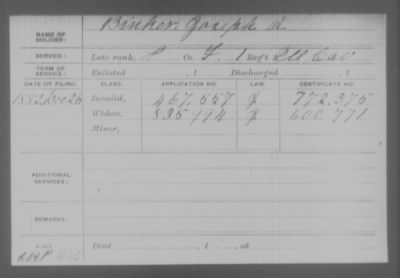 NAME OF SOLDIER: Binker, Joseph A.
SERVICE: Late rank, P Co. F, 1 Reg't Ill Cav
TERM OF SERVICE: Enlisted , 1 Discharged , 1
DATE OF FILING. CLASS. APPLICATION NO. LAW. CERTIFICATE NO.
1882 Dec 26 Invalid, 467.557 772.375
Widow, 835.794 600.771
Minor,
ADDITIONAL SERVICES:
REMARKS:
Died , 1 , at